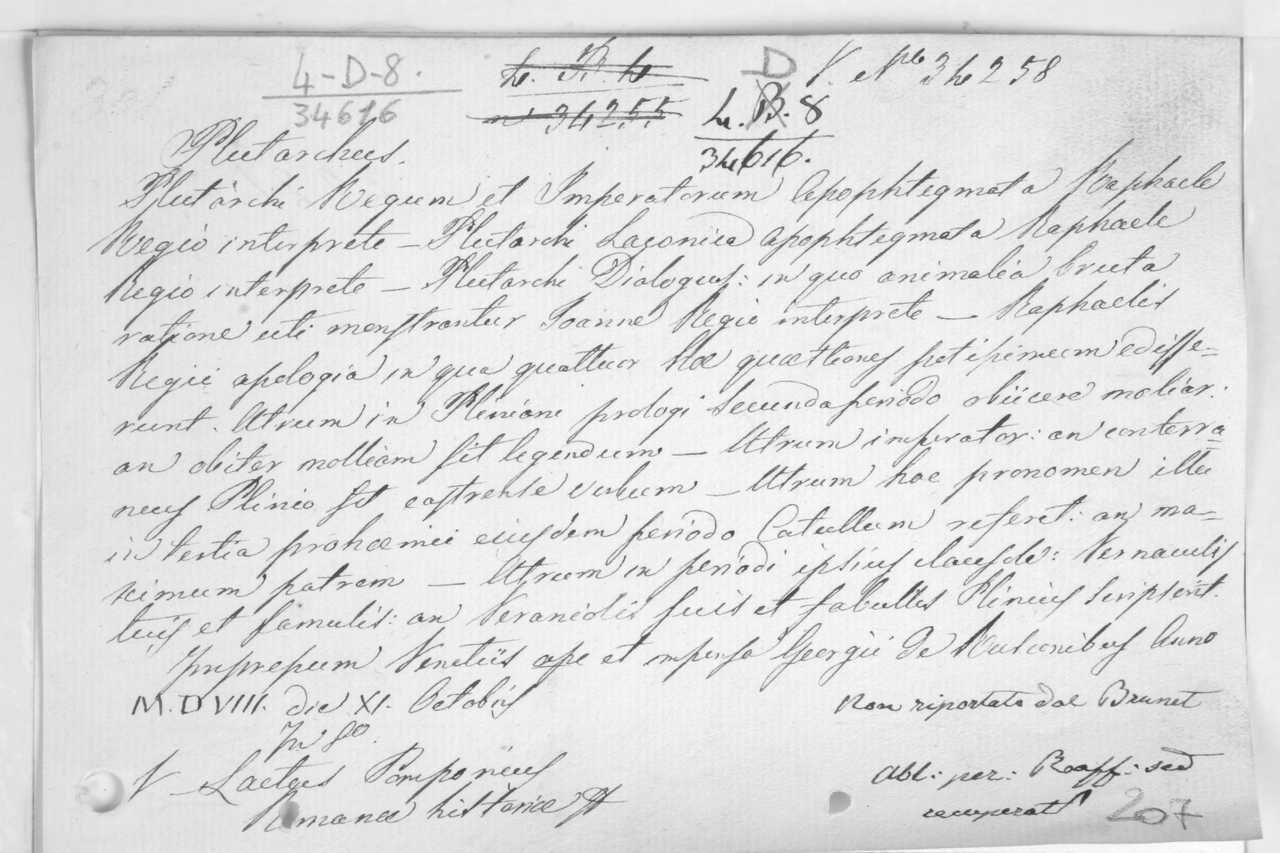 4-D-8.
34616
L. B. L
n° 34255
D
L. B. 8
34616.
V. el N.ro 34258
Plutarchus.
Plutarchi Regum et Imperatorum Apophtegmata Raphaele
Regio interprete – Plutarchi Laconica apophtegmata Raphaele
Regio interprete – Plutarchi Dialogus: in quo animalia bruta
ratione uti monstrantur Joanne Regio interprete – Raphaelis
Regii apologia in qua quattuor hae quaestiones potissimum edisse-
runt. Utrum in Pliniani prologi secunda periodo obiicere moliar:
an obiter molliam sit legendum – Utrum imperator: an conterra-
neus Plinio sit castrense verbum – Utrum hoc pronomen ille
in tertia prohoemii eiusdem periodo Catullum referet: an ma-
ximum patrem – Utrum in periodi ipsius clausula: Vernaculis
tuis et famulis: an Veraniolis suis et fabullis Plinius scripserit.
Impressum Venetiis ope et impensa Georgii de Rusconibus Anno
M.D.VIII. die XI. Octobris
In 8°.
Non riportato dal Brunet
V – Laetus Pomponius
Romanae historiae &
Abl: per: Raaff: sed
recuperat
207